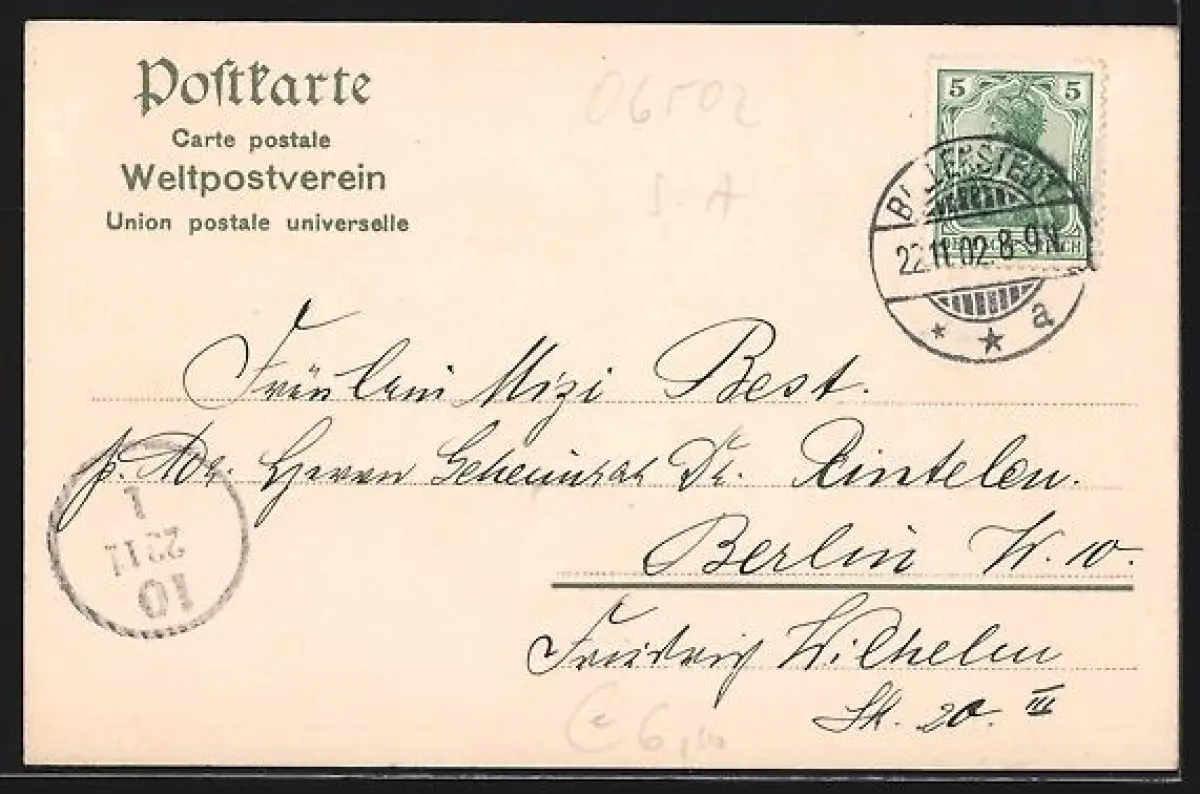 Postkarte
Carte postale
Weltpostverein
Union postale universelle
06502
I-A
5 5
BALLENSTEDT
22.11.02. 8-9N.
* ★ a
Fräulein Mizi Best.
p. Adr. Herrn Geheimrat Dr. Rintelen.
Berlin W. W.
Friedrich Wilhelm
Str. 20. III
1
22 11
10